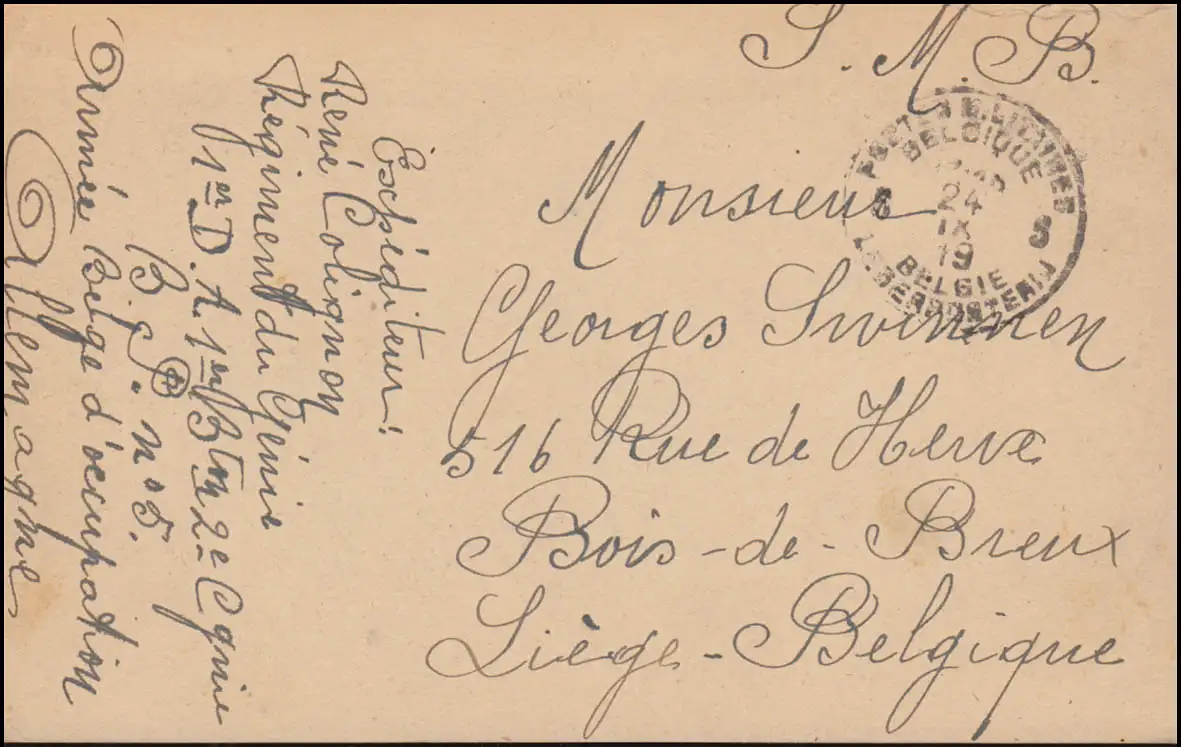 S. M. B.
POSTES MILITAIRES
BELGIQUE
24
IX
19
BELGIE
8 8
Monsieur
Georges Swinnen
516 Rue de Herve
Bois-de-Breux
Liège-Belgique
Exchéditeur:
René Colignon
Régiment du Génie
1er D. A. 1er Btn 2e Cgnie
B. P. n° 5.
Armée Belge d'occupation
Allemagne